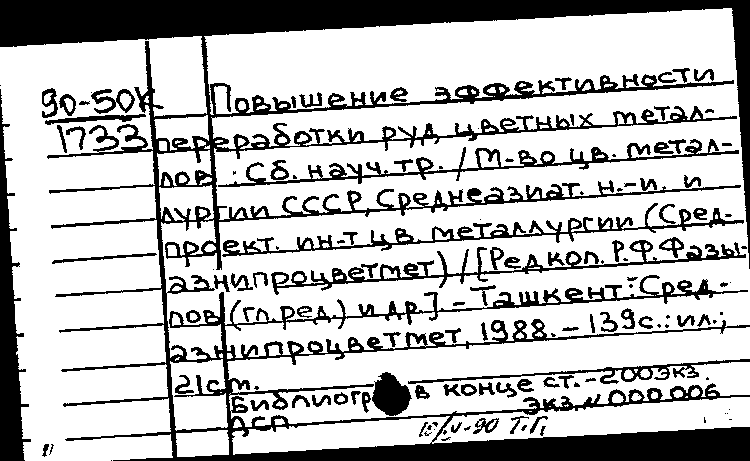 90-50к Повышение эффективности
1733 переработки руд цветных метал-
лов : Сб. науч. тр. / М-во цв. метал-
лургии СССР, Среднеазиат. н.-и. и
проект. ин-т цв. металлургии (Сред-
азнипроцветмет) / [Редкол. Р.Ф. Фазы-
лов (гл. ред.) и др.] – Ташкент : Сред-
азнипроцветмет, 1988. – 139 с. : ил. ;
21 см.
Библиогр в конце ст. – 200 экз.
ДСП. экз. N 000 006
-90 Т.Г.